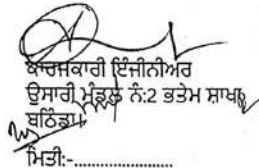 ਕਾਰਜਕਾਰੀ ਇੰਜੀਨੀਅਰ
ਉਸਾਰੀ ਮੰਡਲ ਨੰ:2 ਭਤੇਮ ਸ਼ਾਖ
ਬਠਿੰਡਾ।
ਮਿਤੀ:-......................